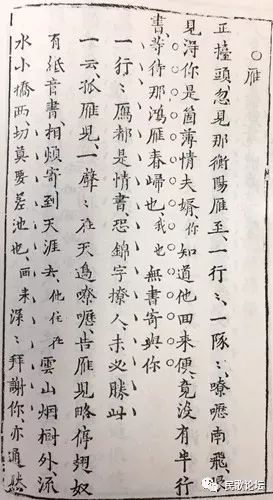 ○雁
正擡頭忽見那衡陽雁至、一行〻、一隊〻、嘹嚦南飛、
見得你是箇薄情夫婿、你知道他回來便、竟沒有半行
書、等待那鴻雁春歸也、我也無書寄與你
一行〻鴈都是情書、恐錦字撩人、未必勝此
一云、孤雁兒、一聲〻在天邊嘹嚦、告雁兒略停翅、奴
有紙音書、相煩寄到天涯去、他住在雲山烟樹外流
水小橋西、切莫要差池也、回來深〻拜謝你亦通然
民歌论坛